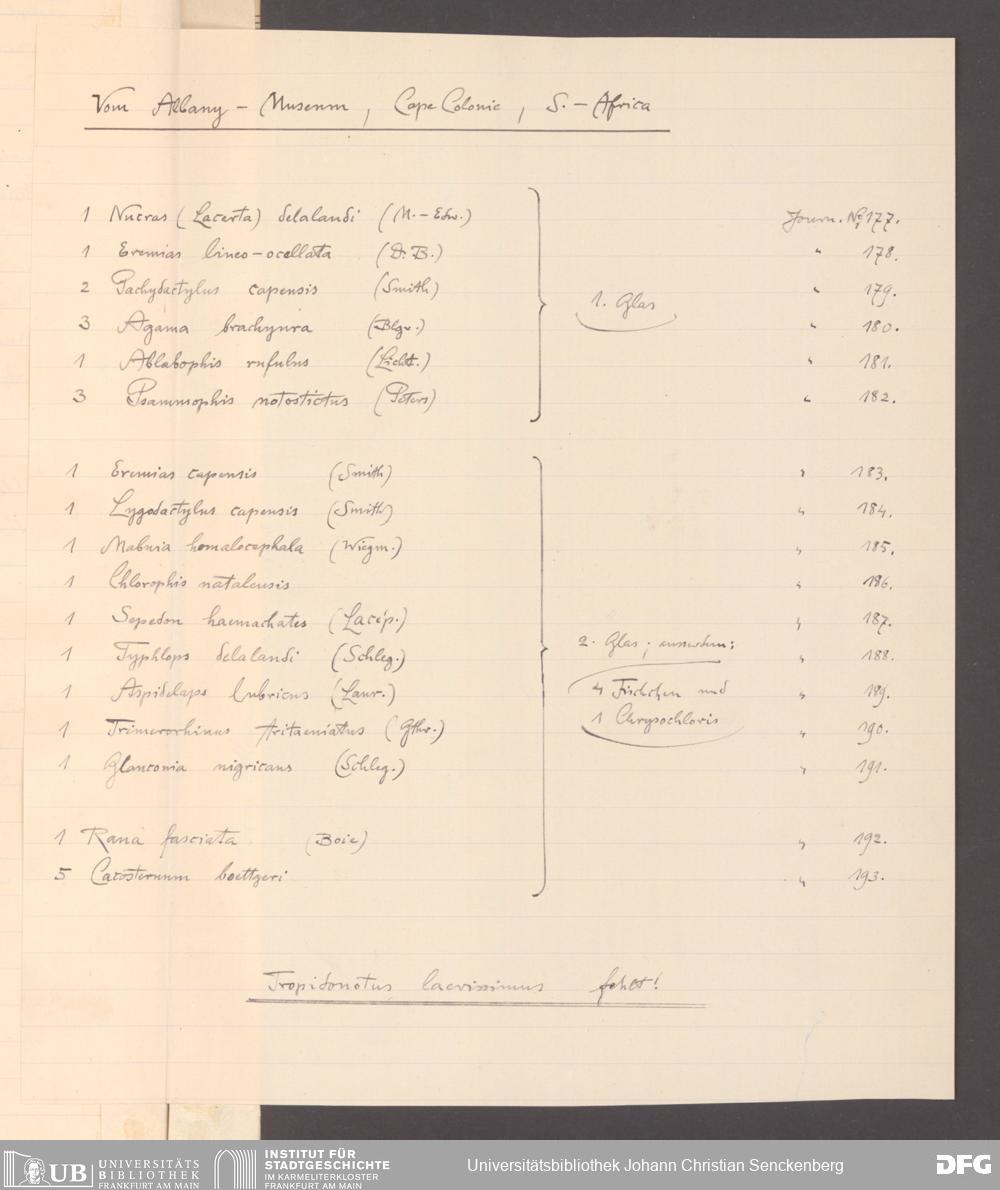 Vom Albany - Museum, Cape Colonie, S.-Africa
1 Nucras (Lacerta) delalandi (M.-Edw.) Journ. No 177.
1 Eremias lineo-ocellata (D. B.) " 178.
2 Pachydactylus capensis (Smith) " 179.
1. Glas
3 Agama brachyura (Blgr.) " 180.
1 Ablabophis rufulus (Licht.) " 181.
3 Psammophis notostictus (Peters) " 182.
1 Eremias capensis (Smith) " 183.
1 Lygodactylus capensis (Smith) " 184.
1 Mabuia homalocephala (Wiegm.) " 185.
1 Chlorophis natalensis " 186.
1 Sepedon haemachates (Lacép.) " 187.
2. Glas; ausserdem:
1 Typhlops delalandi (Schleg.) " 188.
1 Aspidelaps lubricus (Laur.) " 189.
4 Fischchen und
1 Chrysochloris
1 Trimerorhinus tritaeniatus (Gthr.) " 190.
1 Glauconia nigricans (Schleg.) " 191.
1 Rana fasciata (Boie) " 192.
5 Cacosternum boettgeri " 193.
Tropidonotus laevissimus fehlt!
UB UNIVERSITÄTS
BIBLIOTHEK
FRANKFURT AM MAIN
INSTITUT FÜR
STADTGESCHICHTE
IM KARMELITERKLOSTER
FRANKFURT AM MAIN
Universitätsbibliothek Johann Christian Senckenberg
DFG